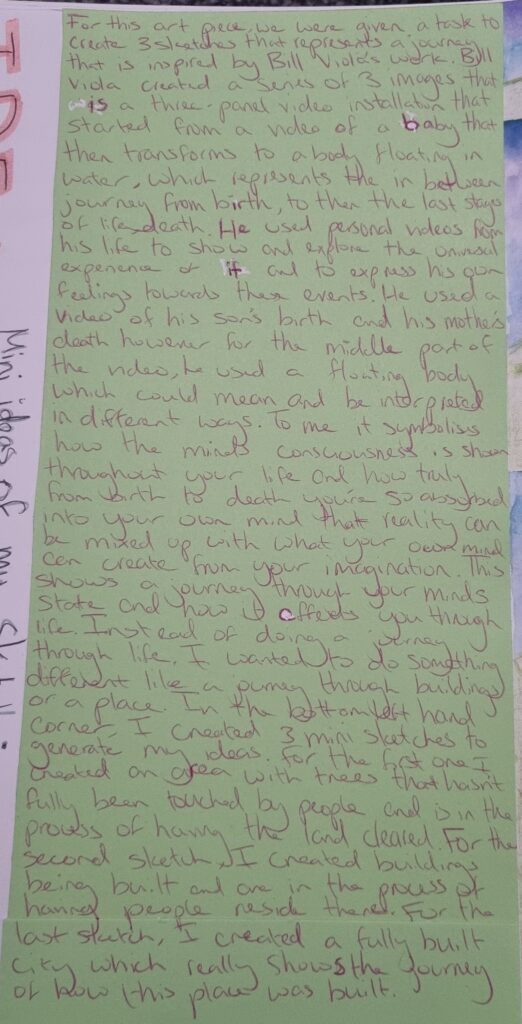 For this art piece, we were given a task to
create 3 sketches that represents a journey
that is inspired by Bill Viola's work. Bill
Viola created a series of 3 images that
is a three-panel video installation that
started from a video of a baby that
then transforms to a body floating in
water, which represents the in between
journey from birth, to then the last stages
of life, death. He used personal videos from
his life to show and explore the universal
experience of it and to express his own
feelings towards these events. He used a
video of his son's birth and his mother's
death however for the middle part of
the video, he used a floating body
which could mean and be interpreted
in different ways. To me it symbolises
how the minds consciousness is shown
throughout your life and how truly
from birth to death you're so absorbed
into your own mind that reality can
be mixed up with what your own mind
can create from your imagination. This
shows a journey through your minds
state and how it effects you through
life. Instead of doing a journey
through life, I wanted to do something
different like a journey through buildings
or a place. In the bottom left hand
corner, I created 3 mini sketches to
generate my ideas. For the first one I
created an area with trees that hasn't
fully been touched by people and is in the
process of having the land cleared. For the
second sketch, I created buildings
being built and are in the process of
having people reside there. For the
last sketch, I created a fully built
city which really shows the journey
of how this place was built.
Mini ideas of my